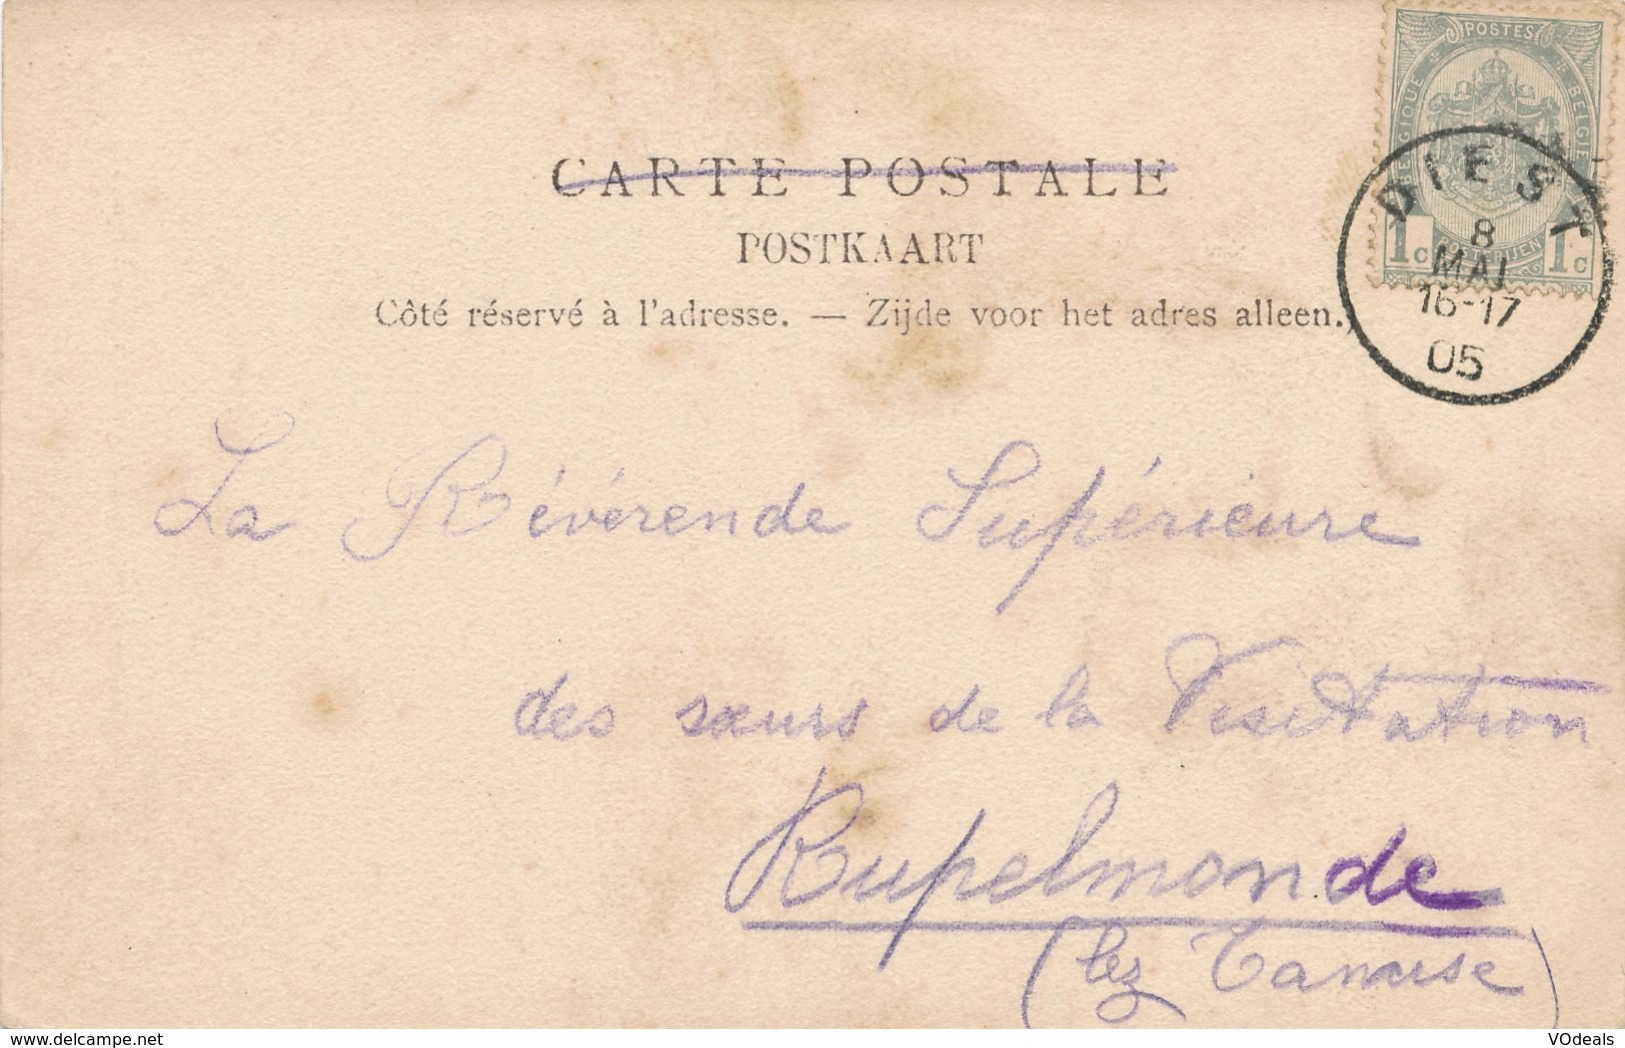 POSTES
BELGIQUE
BELGIË
1c 1c
DIEST
8
MAI
16-17
05
CARTE POSTALE
POSTKAART
Côté réservé à l'adresse. — Zijde voor het adres alleen.
La Révérende Supérieure
des sœurs de la Visitation
Rupelmonde
(lez Tamise)
www.delcampe.net
VOdeals